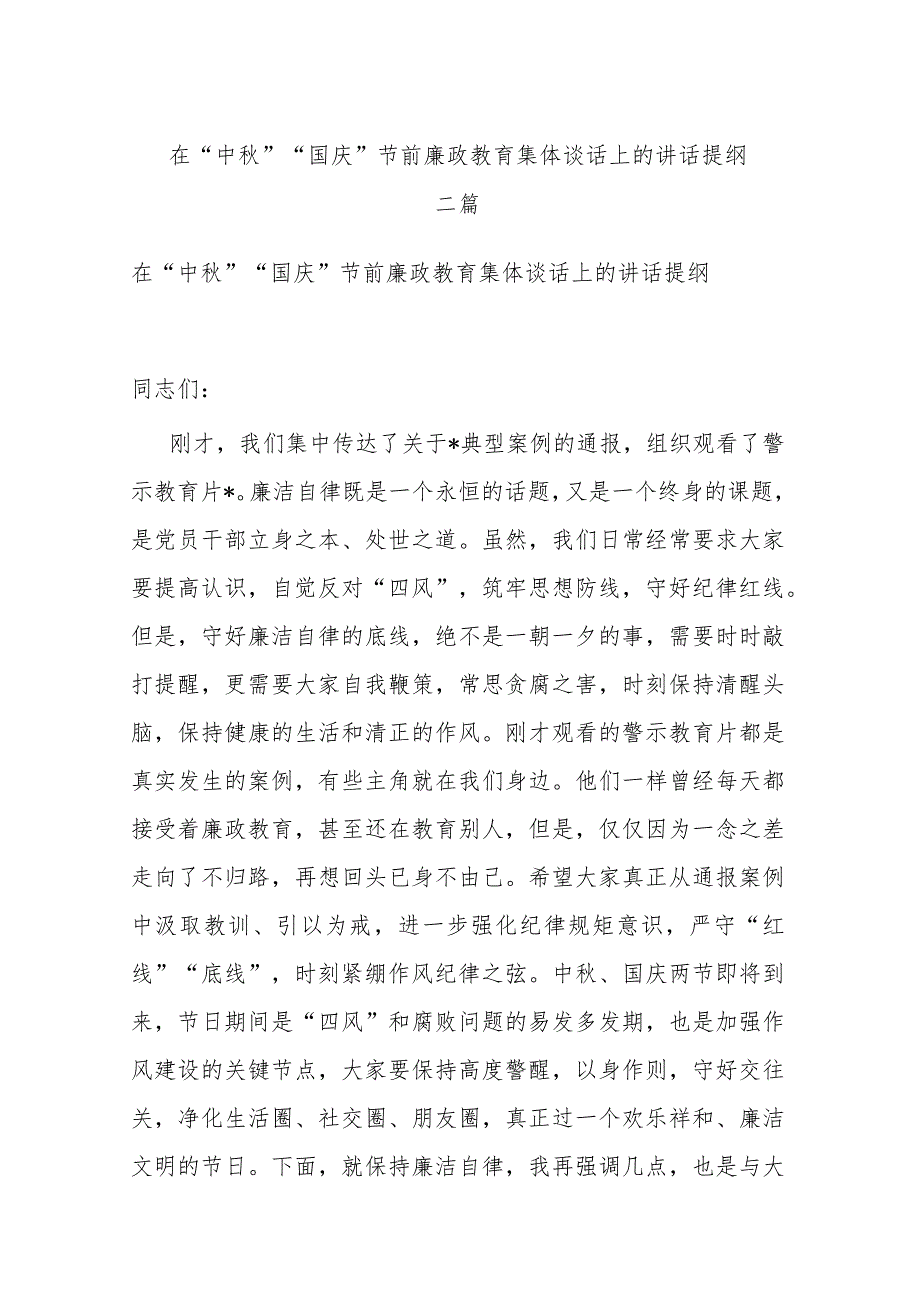 在“中秋”“国庆”节前廉政教育集体谈话上的讲话提纲
二篇
在“中秋”“国庆”节前廉政教育集体谈话上的讲话提纲
同志们：
刚才，我们集中传达了关于*典型案例的通报，组织观看了警
示教育片*。廉洁自律既是一个永恒的话题，又是一个终身的课题，
是党员干部立身之本、处世之道。虽然，我们日常经常要求大家
要提高认识，自觉反对“四风”，筑牢思想防线，守好纪律红线。
但是，守好廉洁自律的底线，绝不是一朝一夕的事，需要时时敲
打提醒，更需要大家自我鞭策，常思贪腐之害，时刻保持清醒头
脑，保持健康的生活和清正的作风。刚才观看的警示教育片都是
真实发生的案例，有些主角就在我们身边。他们一样曾经每天都
接受着廉政教育，甚至还在教育别人，但是，仅仅因为一念之差
走向了不归路，再想回头已身不由己。希望大家真正从通报案例
中汲取教训、引以为戒，进一步强化纪律规矩意识，严守“红
线”“底线”，时刻紧绷作风纪律之弦。中秋、国庆两节即将到
来，节日期间是“四风”和腐败问题的易发多发期，也是加强作
风建设的关键节点，大家要保持高度警醒，以身作则，守好交往
关，净化生活圈、社交圈、朋友圈，真正过一个欢乐祥和、廉洁
文明的节日。下面，就保持廉洁自律，我再强调几点，也是与大